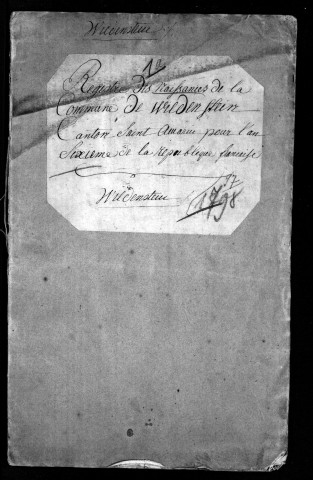 Wildenstein
Registre des Naissances de la
Commune de Wildenstein
Canton Saint Amarin pour l'an
Sixieme de la Republique francaise
Wildenstein
1798